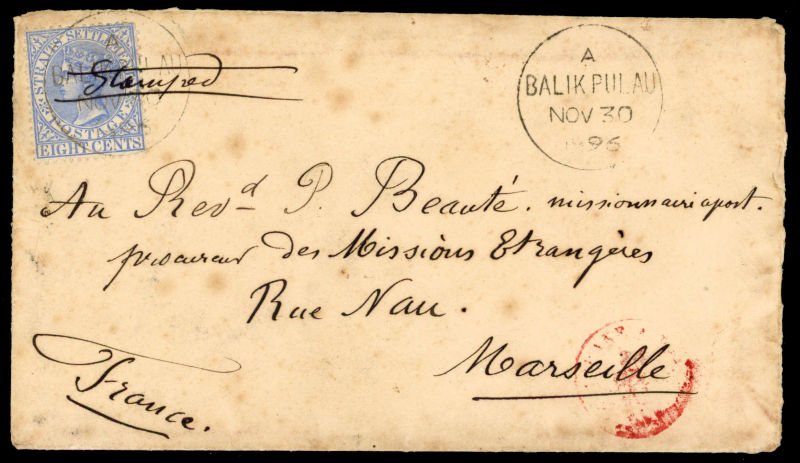 STRAITS SETTLEMENTS
POSTAGE
EIGHT CENTS
BALIK PULAU
Stamped
A
BALIK PULAU
NOV 30
96
Au Revd P. Beauté. missionnaire apost.
procureur des Missions Etrangères
Rue Nau.
Marseille
France.